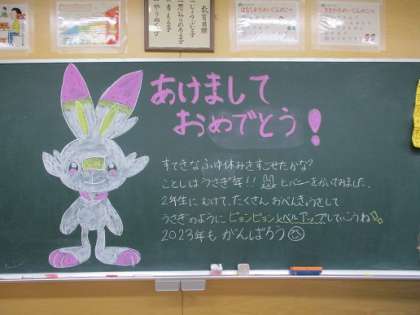 教育目標
あけまして
おめでとう!
すてきなふゆ休みをすごせたかな?
ことしはうさぎ年!! ヒバニーをかいてみました。
2年生にむけて、たくさんおべんきょうをして
うさぎのようにピョンピョンレベルアップしていこうね!!
2023年もがんばろう